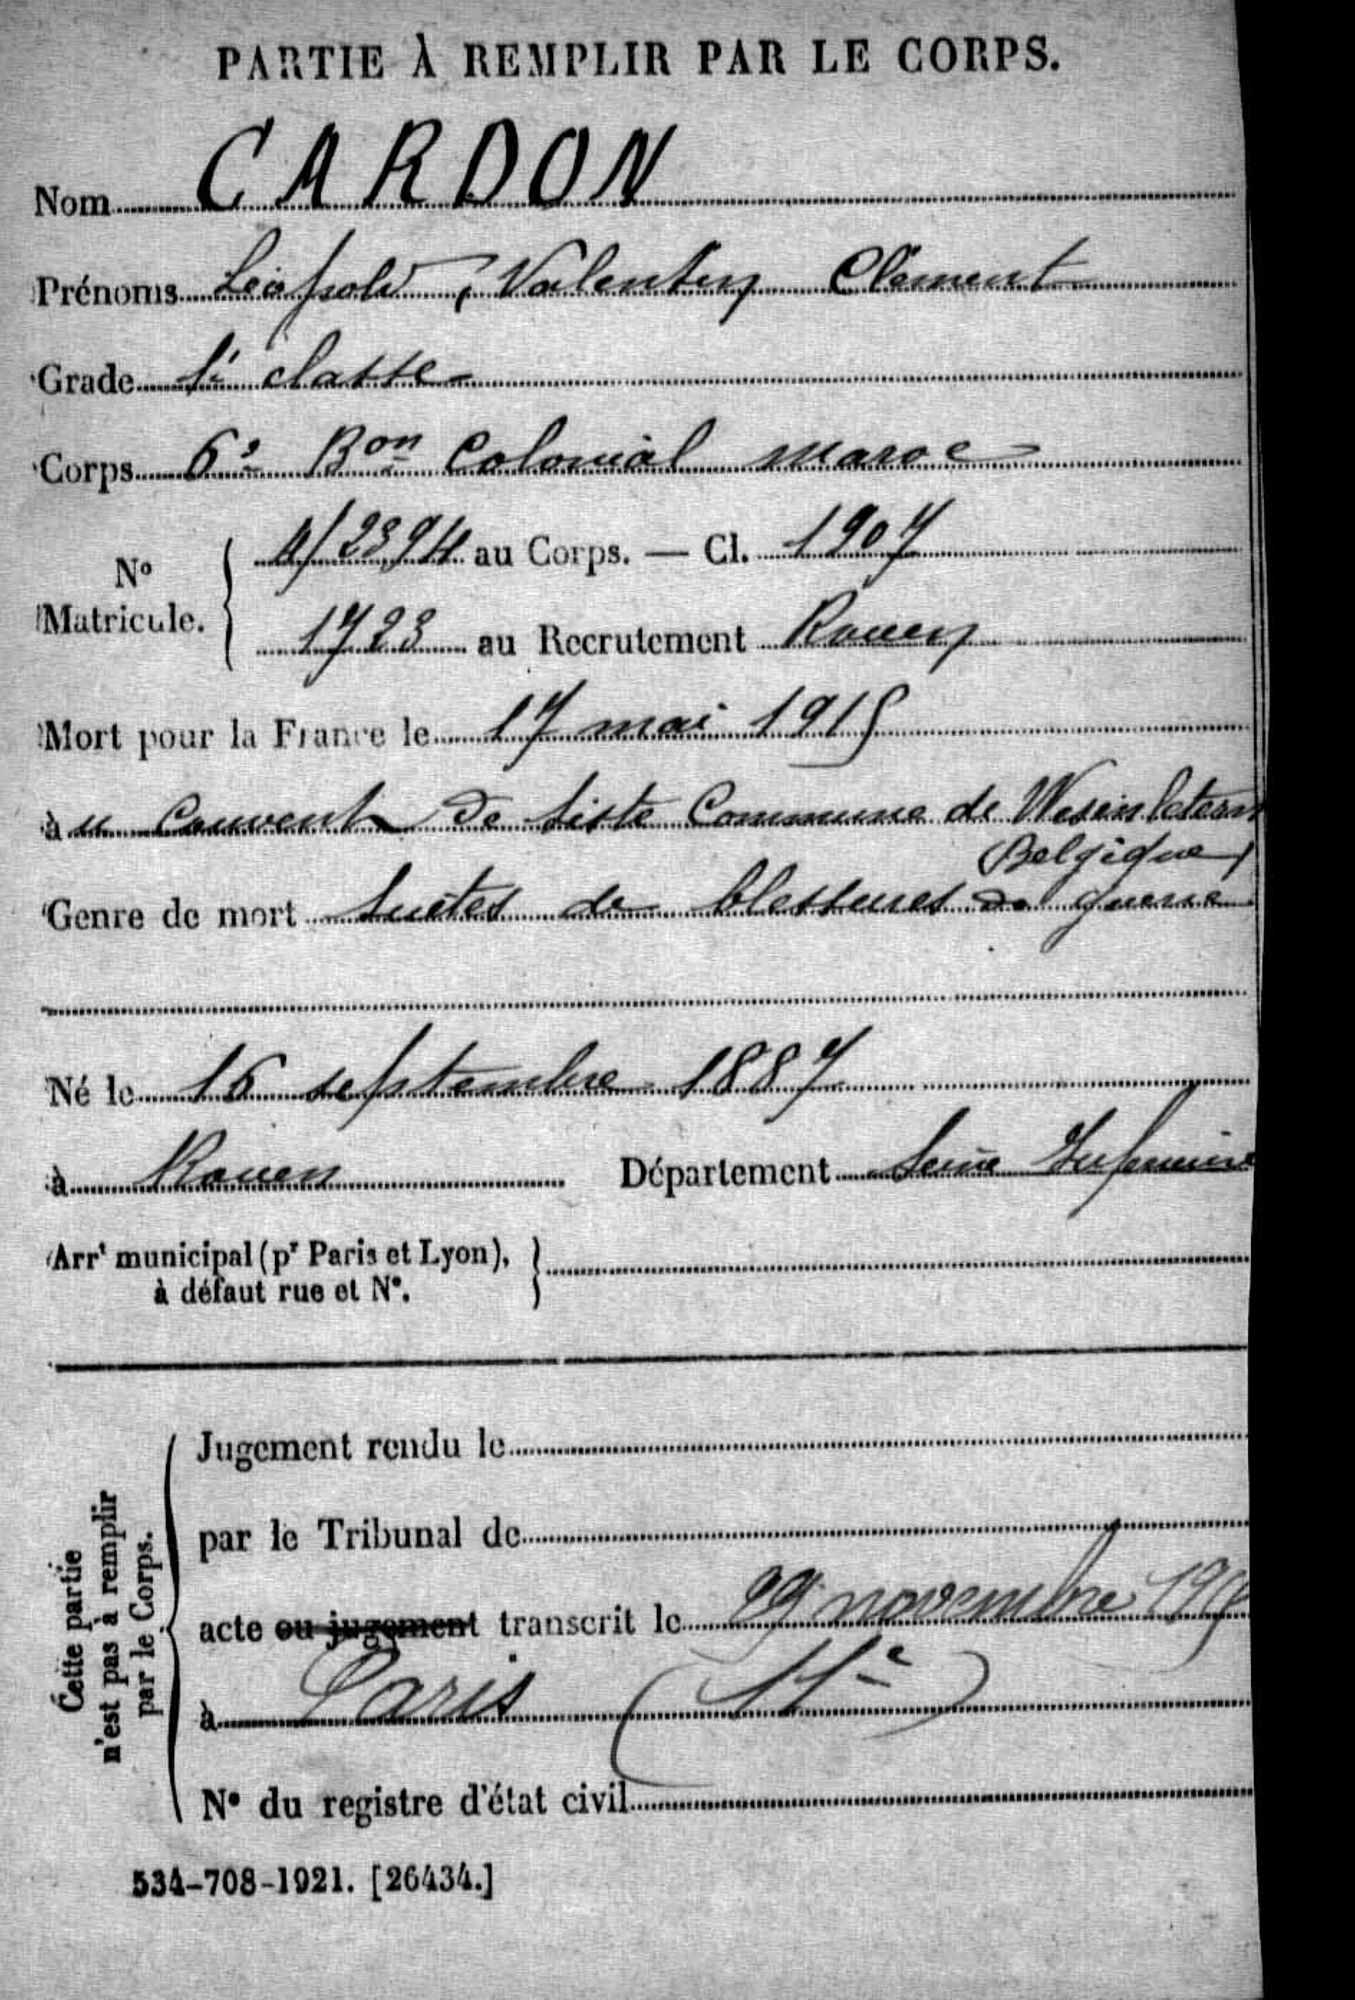 PARTIE À REMPLIR PAR LE CORPS.
Nom CARDON
Prénoms Léopold, Valentin Clément
Grade 1e classe
Corps 6e Bon Colonial maroc
No Matricule. 4/2394 au Corps. — Cl. 1907
1723 au Recrutement Rouen
Mort pour la France le 17 mai 1915
à u Couvent de Sixte Commune de
(Belgique)
Genre de mort Suites de blessures de guerre
Né le 16 septembre 1887
à Rouen Département Seine Inférieure
Arrt municipal (pr Paris et Lyon),
à défaut rue et No.
Cette partie
n'est pas à remplir
par le Corps.
Jugement rendu le
par le Tribunal de
acte ou jugement transcrit le 29 novembre
à Paris (11e)
No du registre d'état civil
534-708-1921. [26434.]